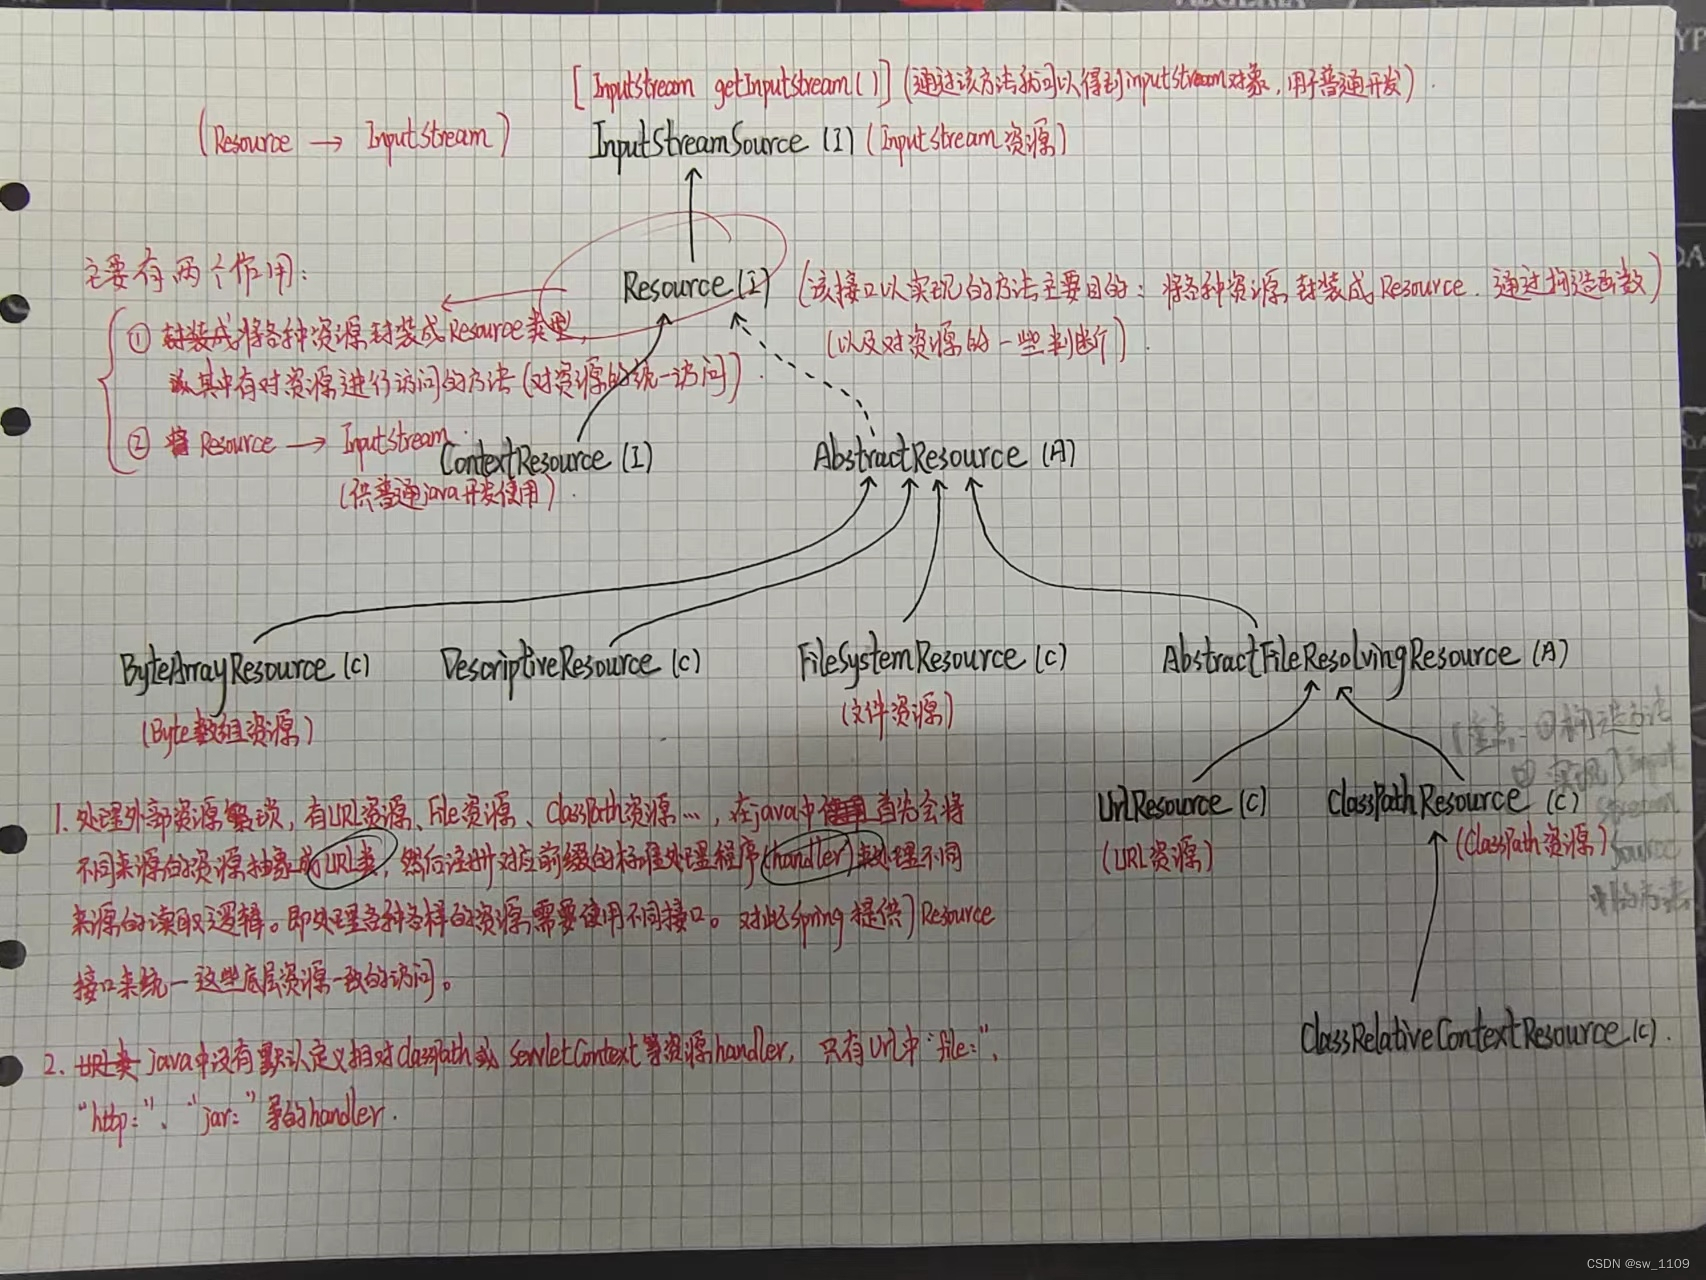 [ InputStream getInputStream( ) ] (通过该方法就可以得到inputStream对象，用于普通开发) .
(Resource → InputStream)
InputStreamSource (I) (InputStream 资源)
主要有两个作用：
Resource (I) (该接口以实现的方法主要目的：将各种资源封装成Resource. 通过构造函数)
(以及对资源的一些判断) .
① 将各种资源封装成Resource类型,
其中有对资源进行访问的方法 (对资源的统一访问) .
② Resource → InputStream .
(供普通java开发使用) .
ContextResource (I)
AbstractResource (A)
ByteArrayResource (C)
(Byte数组资源)
DescriptiveResource (C)
FileSystemResource (C)
(文件资源)
AbstractFileResolvingResource (A)
UrlResource (C)
(URL资源)
ClassPathResource (C)
(ClassPath资源)
①构造方法
② 实现了Input
Stream
Source
中的方法
ClassRelativeContextResource (C) .
1. 处理外部资源繁琐，有URL资源、File资源、ClassPath资源…，在java中首先会将
不同来源的资源抽象成URL类，然后注册对应前缀的标准处理程序(handler)来处理不同
来源的读取逻辑。即处理各种各样的资源需要使用不同接口。对此Spring提供了Resource
接口来统一这些底层资源一致的访问。
2. java中没有默认定义相对classPath或ServletContext等资源handler，只有Url中“file:”、
“http:”、“jar:”等的handler.
CSDN @sw_1109